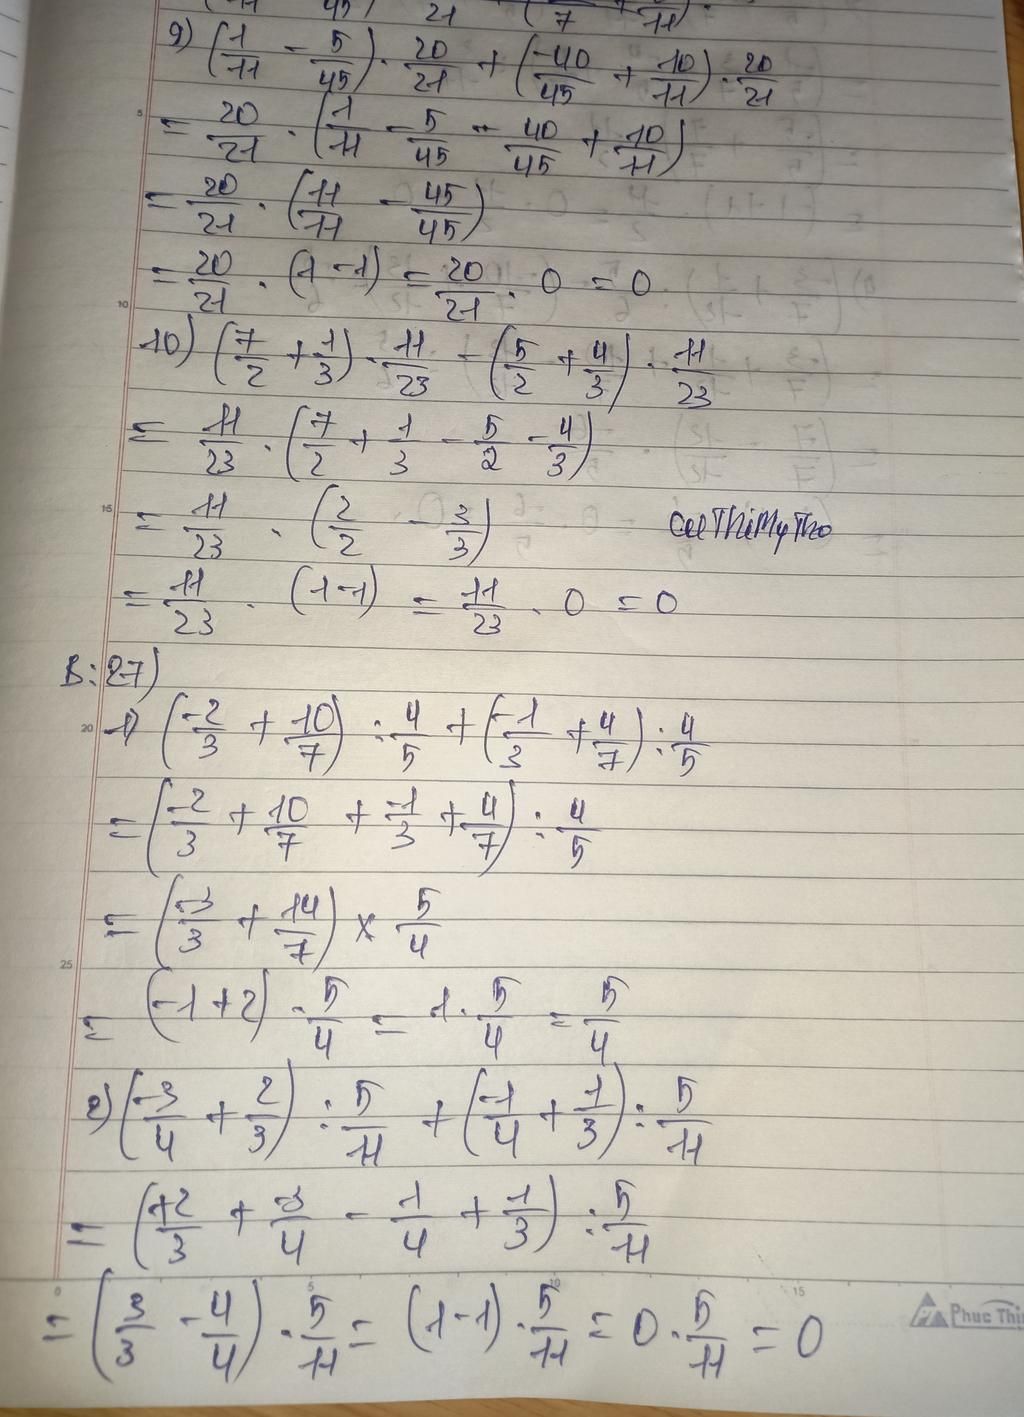 9) (1/11 - 5/45) . 20/21 + (-40/45 + 10/11) . 20/21
= 20/21 . (1/11 - 5/45 - 40/45 + 10/11)
= 20/21 . (11/11 - 45/45)
= 20/21 . (1-1) = 20/21 . 0 = 0
10) (7/2 + 1/3) . 11/23 - (5/2 + 4/3) . 11/23
= 11/23 . (7/2 + 1/3 - 5/2 - 4/3)
= 11/23 . (2/2 - 3/3)
= 11/23 . (1-1) = 11/23 . 0 = 0
B:27)
1) (-2/3 + 10/7) : 4/5 + (-1/3 + 4/7) : 4/5
= (-2/3 + 10/7 + -1/3 + 4/7) : 4/5
= (-3/3 + 14/7) x 5/4
= (-1+2) . 5/4 = 1 . 5/4 = 5/4
2) (-3/4 + 2/3) : 5/11 + (-1/4 + 1/3) : 5/11
= (+2/3 + -3/4 - 1/4 + 1/3) : 5/11
= (3/3 - 4/4) . 5/11 = (1-1) . 5/11 = 0 . 5/11 = 0
5
10
15
20
25
0 5 10 15